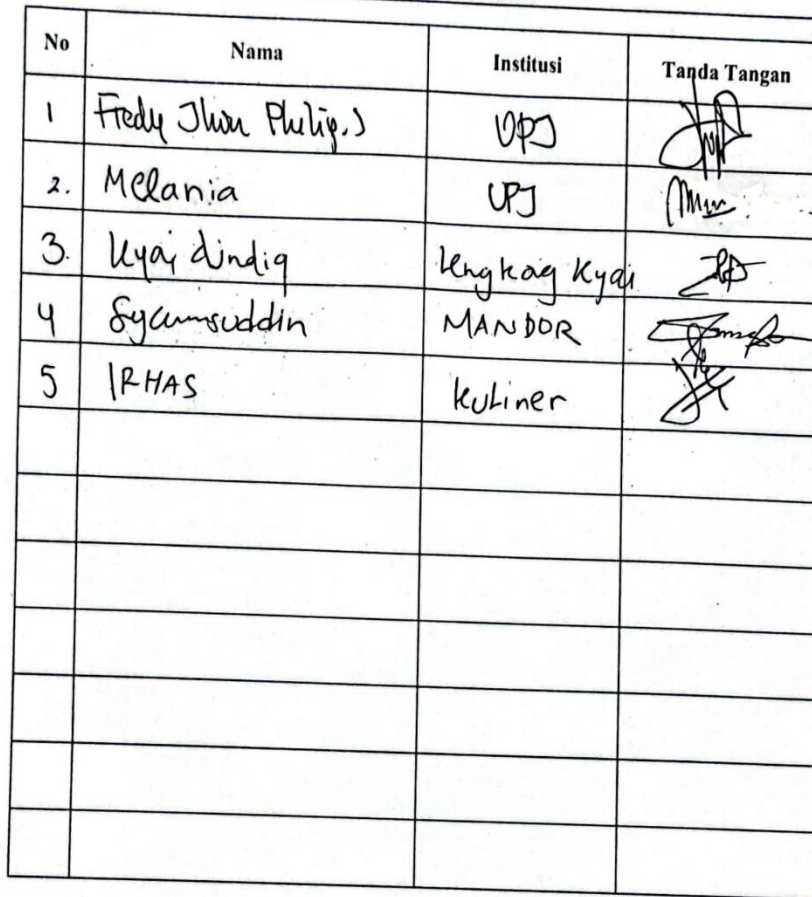 No Nama Institusi Tanda Tangan
1 Fredy Jhon Philip.S UPJ
2. Melania UPJ
3. Kyai Dindiq Lengkag Kyai
4 Syamsuddin MANDOR
5 IRHAS Kuliner